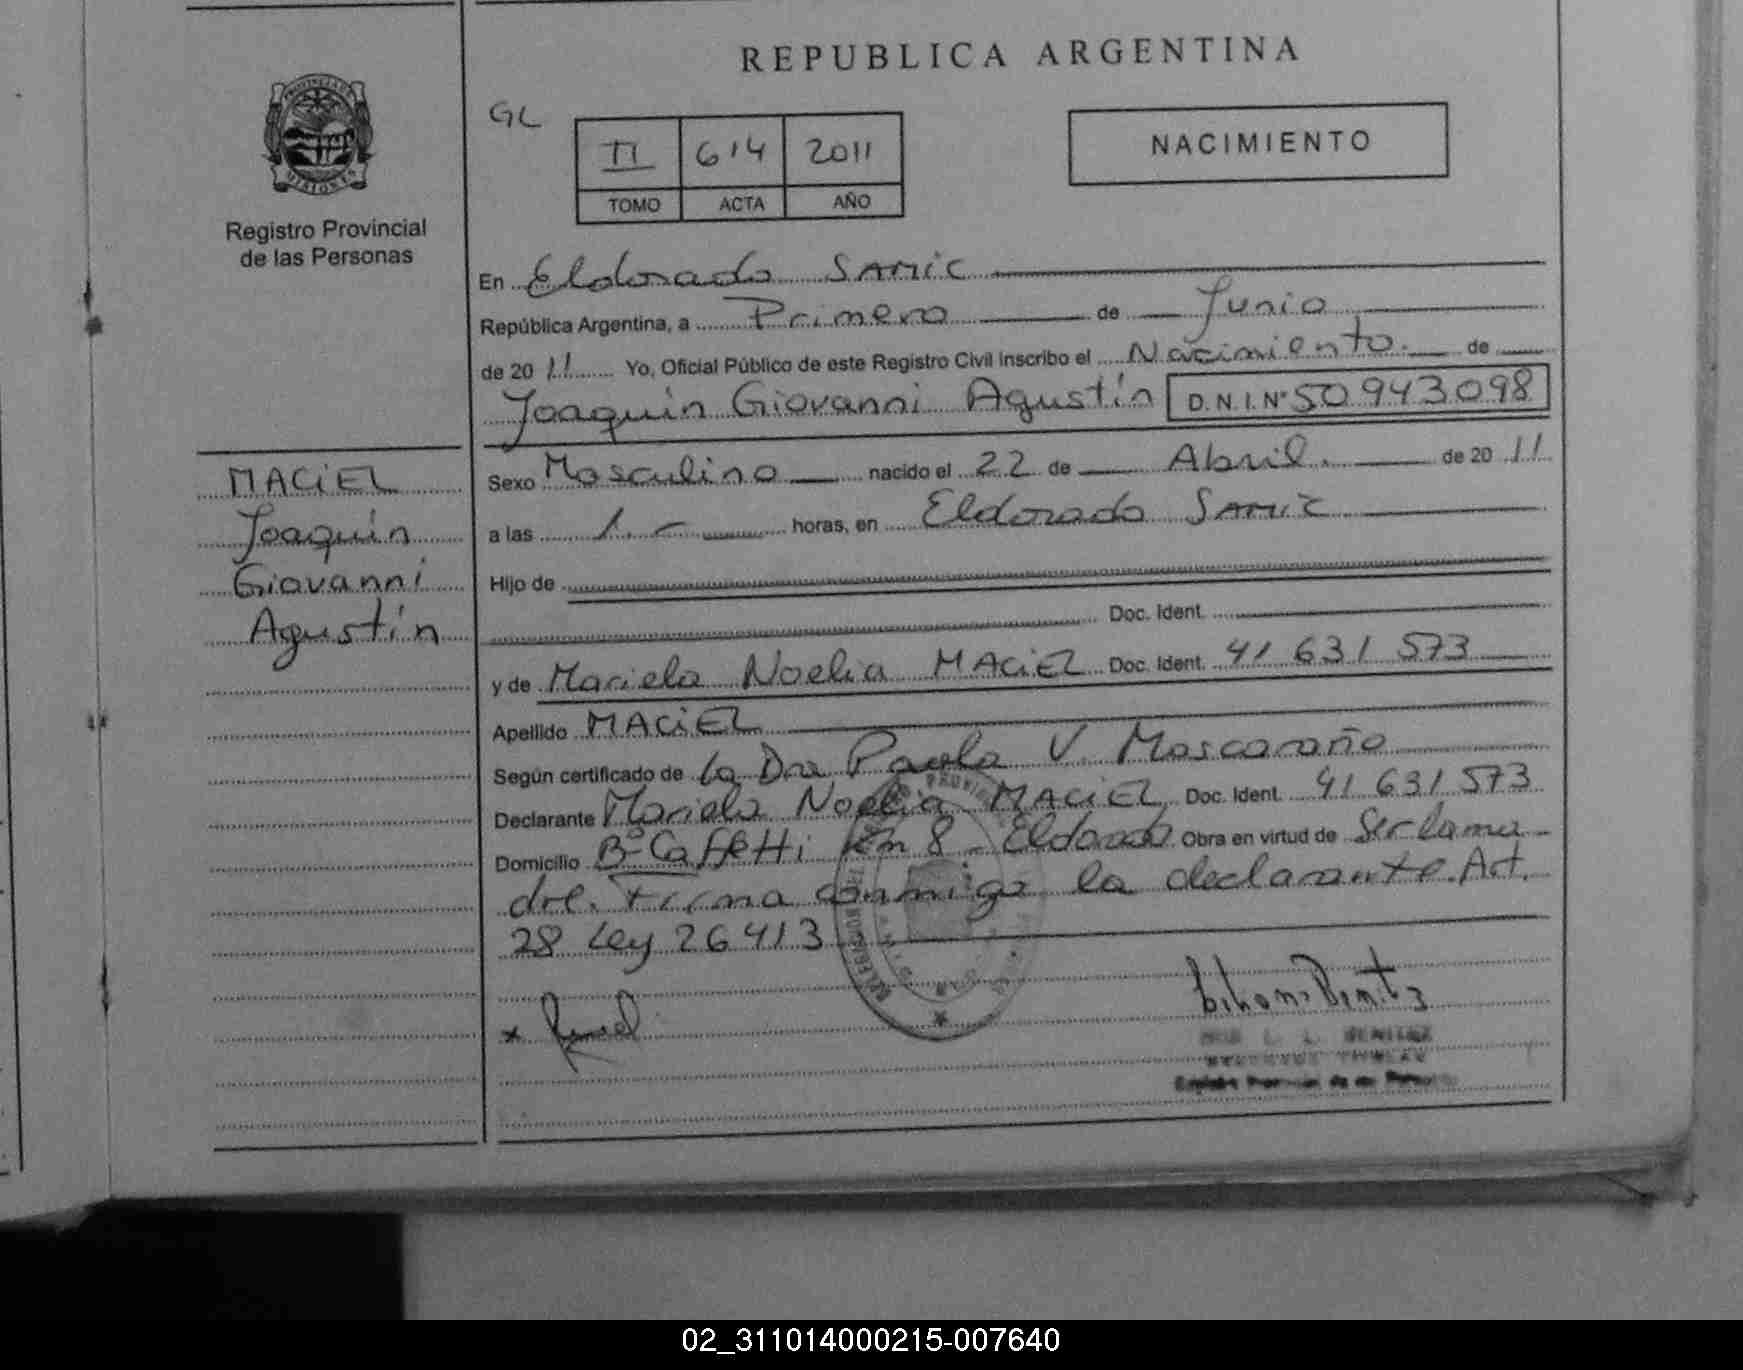 REPUBLICA ARGENTINA
PROVINCIA DE MISIONES
Registro Provincial
de las Personas
GL
II 614 2011
TOMO ACTA AÑO
NACIMIENTO
En Eldorado SAMIC
República Argentina, a Primero de Junio
de 2011 Yo, Oficial Público de este Registro Civil inscribo el Nacimiento. de
Joaquín Giovanni Agustín D.N.I. Nº 50 943 098
MACIEL
Joaquín
Giovanni
Agustín
Sexo Masculino nacido el 22 de Abril. de 2011
a las 1.- horas, en Eldorado SAMIC
Hijo de
Doc. Ident.
y de Mariela Noelia MACIEL Doc. Ident. 41 631 573
Apellido MACIEL
Según certificado de la Dra Paola V. Moscaraño
Declarante Mariela Noelia MACIEL Doc. Ident. 41 631 573
Domicilio Bº Caffetti Km 8 - Eldorado Obra en virtud de Ser la ma-
dre. Firma conmigo la declarante. Art.
28 Ley 26413
BENITEZ
02_311014000215-007640